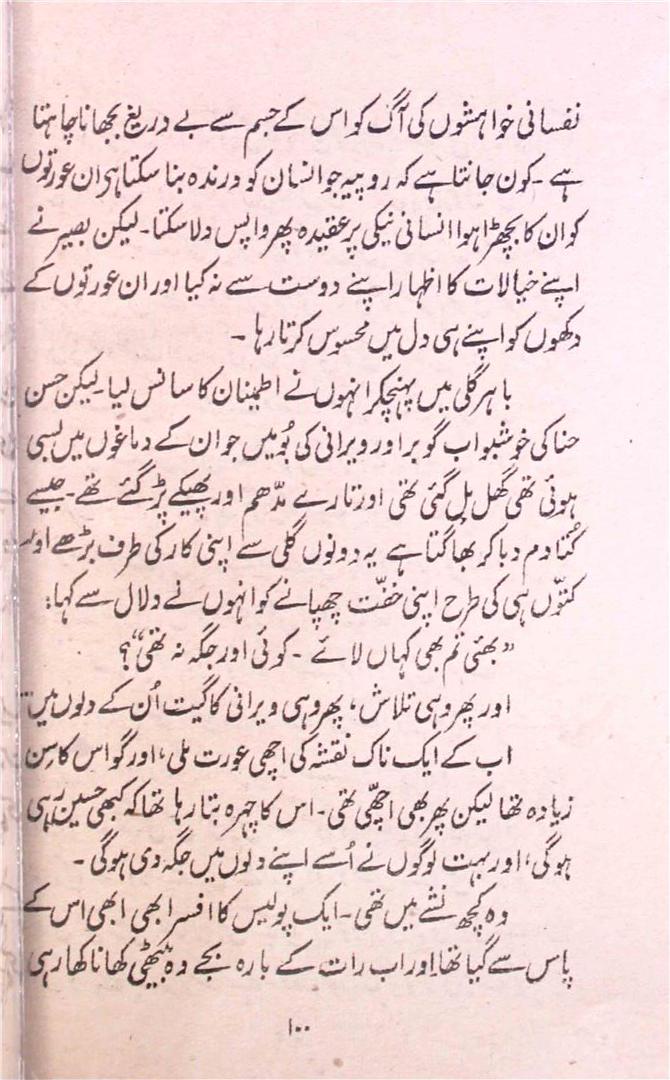 نفسانی خواہشوں کی آگ کو اس کے جسم سے بے دریغ بجھانا چاہتا
ہے۔ کون جانتا ہے کہ روپیہ جو انسان کو درندہ بنا سکتا ہے ان عورتوں
کو ان کا بچھڑا ہوا انسانی نیکی پر عقیدہ پھر واپس دلا سکتا۔ لیکن بصیر نے
اپنے خیالات کا اظہار اپنے دوست سے نہ کیا اور ان عورتوں کے
دکھوں کو اپنے ہی دل میں محسوس کرتا رہا ۔
باہر گلی میں پہنچکر انہوں نے اطمینان کا سانس لیا۔ لیکن حسن
حنا کی خوشبو اب گوبر اور ویرانی کی بُو میں جو ان کے دماغوں میں بسی
ہوئی تھی گھل مل گئی تھی اور تارے مدّھم اور پھیکے پڑ گئے تھے۔ جیسے
کُتا دم دبا کر بھاگتا ہے یہ دونوں گلی سے اپنی کار کی طرف بڑھے اور
کتّوں ہی کی طرح اپنی خفّت چھپانے کو انہوں نے دلال سے کہا:
”بھئی تم بھی کہاں لائے ۔ کوئی اور جگہ نہ تھی“؟
اور پھر وہی تلاش، پھر وہی ویرانی کا گیت اُن کے دلوں میں
اب کے ایک ناک نقشہ کی اچھی عورت ملی، اور گو اس کا سِن
زیادہ تھا لیکن پھر بھی اچھّی تھی۔ اس کا چہرہ بتا رہا تھا کہ کبھی حسین رہی
ہوگی، اور بہت لوگوں نے اُسے اپنے دلوں میں جگہ دی ہوگی ۔
وہ کچھ نشے میں تھی۔ ایک پولیس کا افسر ابھی ابھی اس کے
پاس سے گیا تھا اور اب رات کے بارہ بجے وہ بیٹھی کھانا کھا رہی
۱۰۰